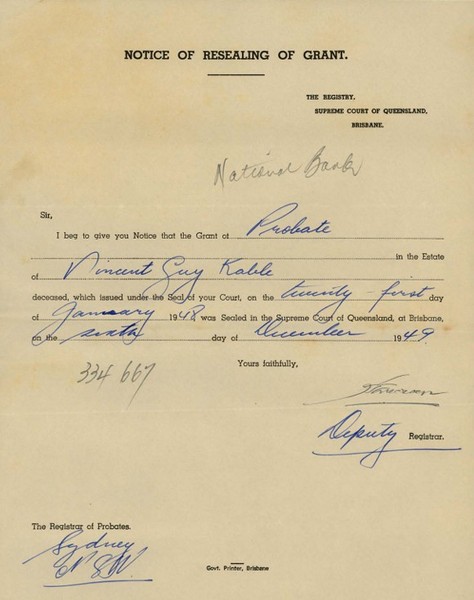 NOTICE OF RESEALING OF GRANT.
THE REGISTRY.
SUPREME COURT OF QUEENSLAND,
BRISBANE.
National Bank
Sir,
I beg to give you Notice that the Grant of Probate
in the Estate
of Vincent Guy Kable
deceased, which issued under the Seal of your Court, on the twenty-first day
of January 1948 was Sealed in the Supreme Court of Queensland, at Brisbane,
on the sixth day of December 1949.
334 667
Yours faithfully,
Deputy Registrar.
The Registrar of Probates.
Sydney
N.S.W.
Govt. Printer, Brisbane